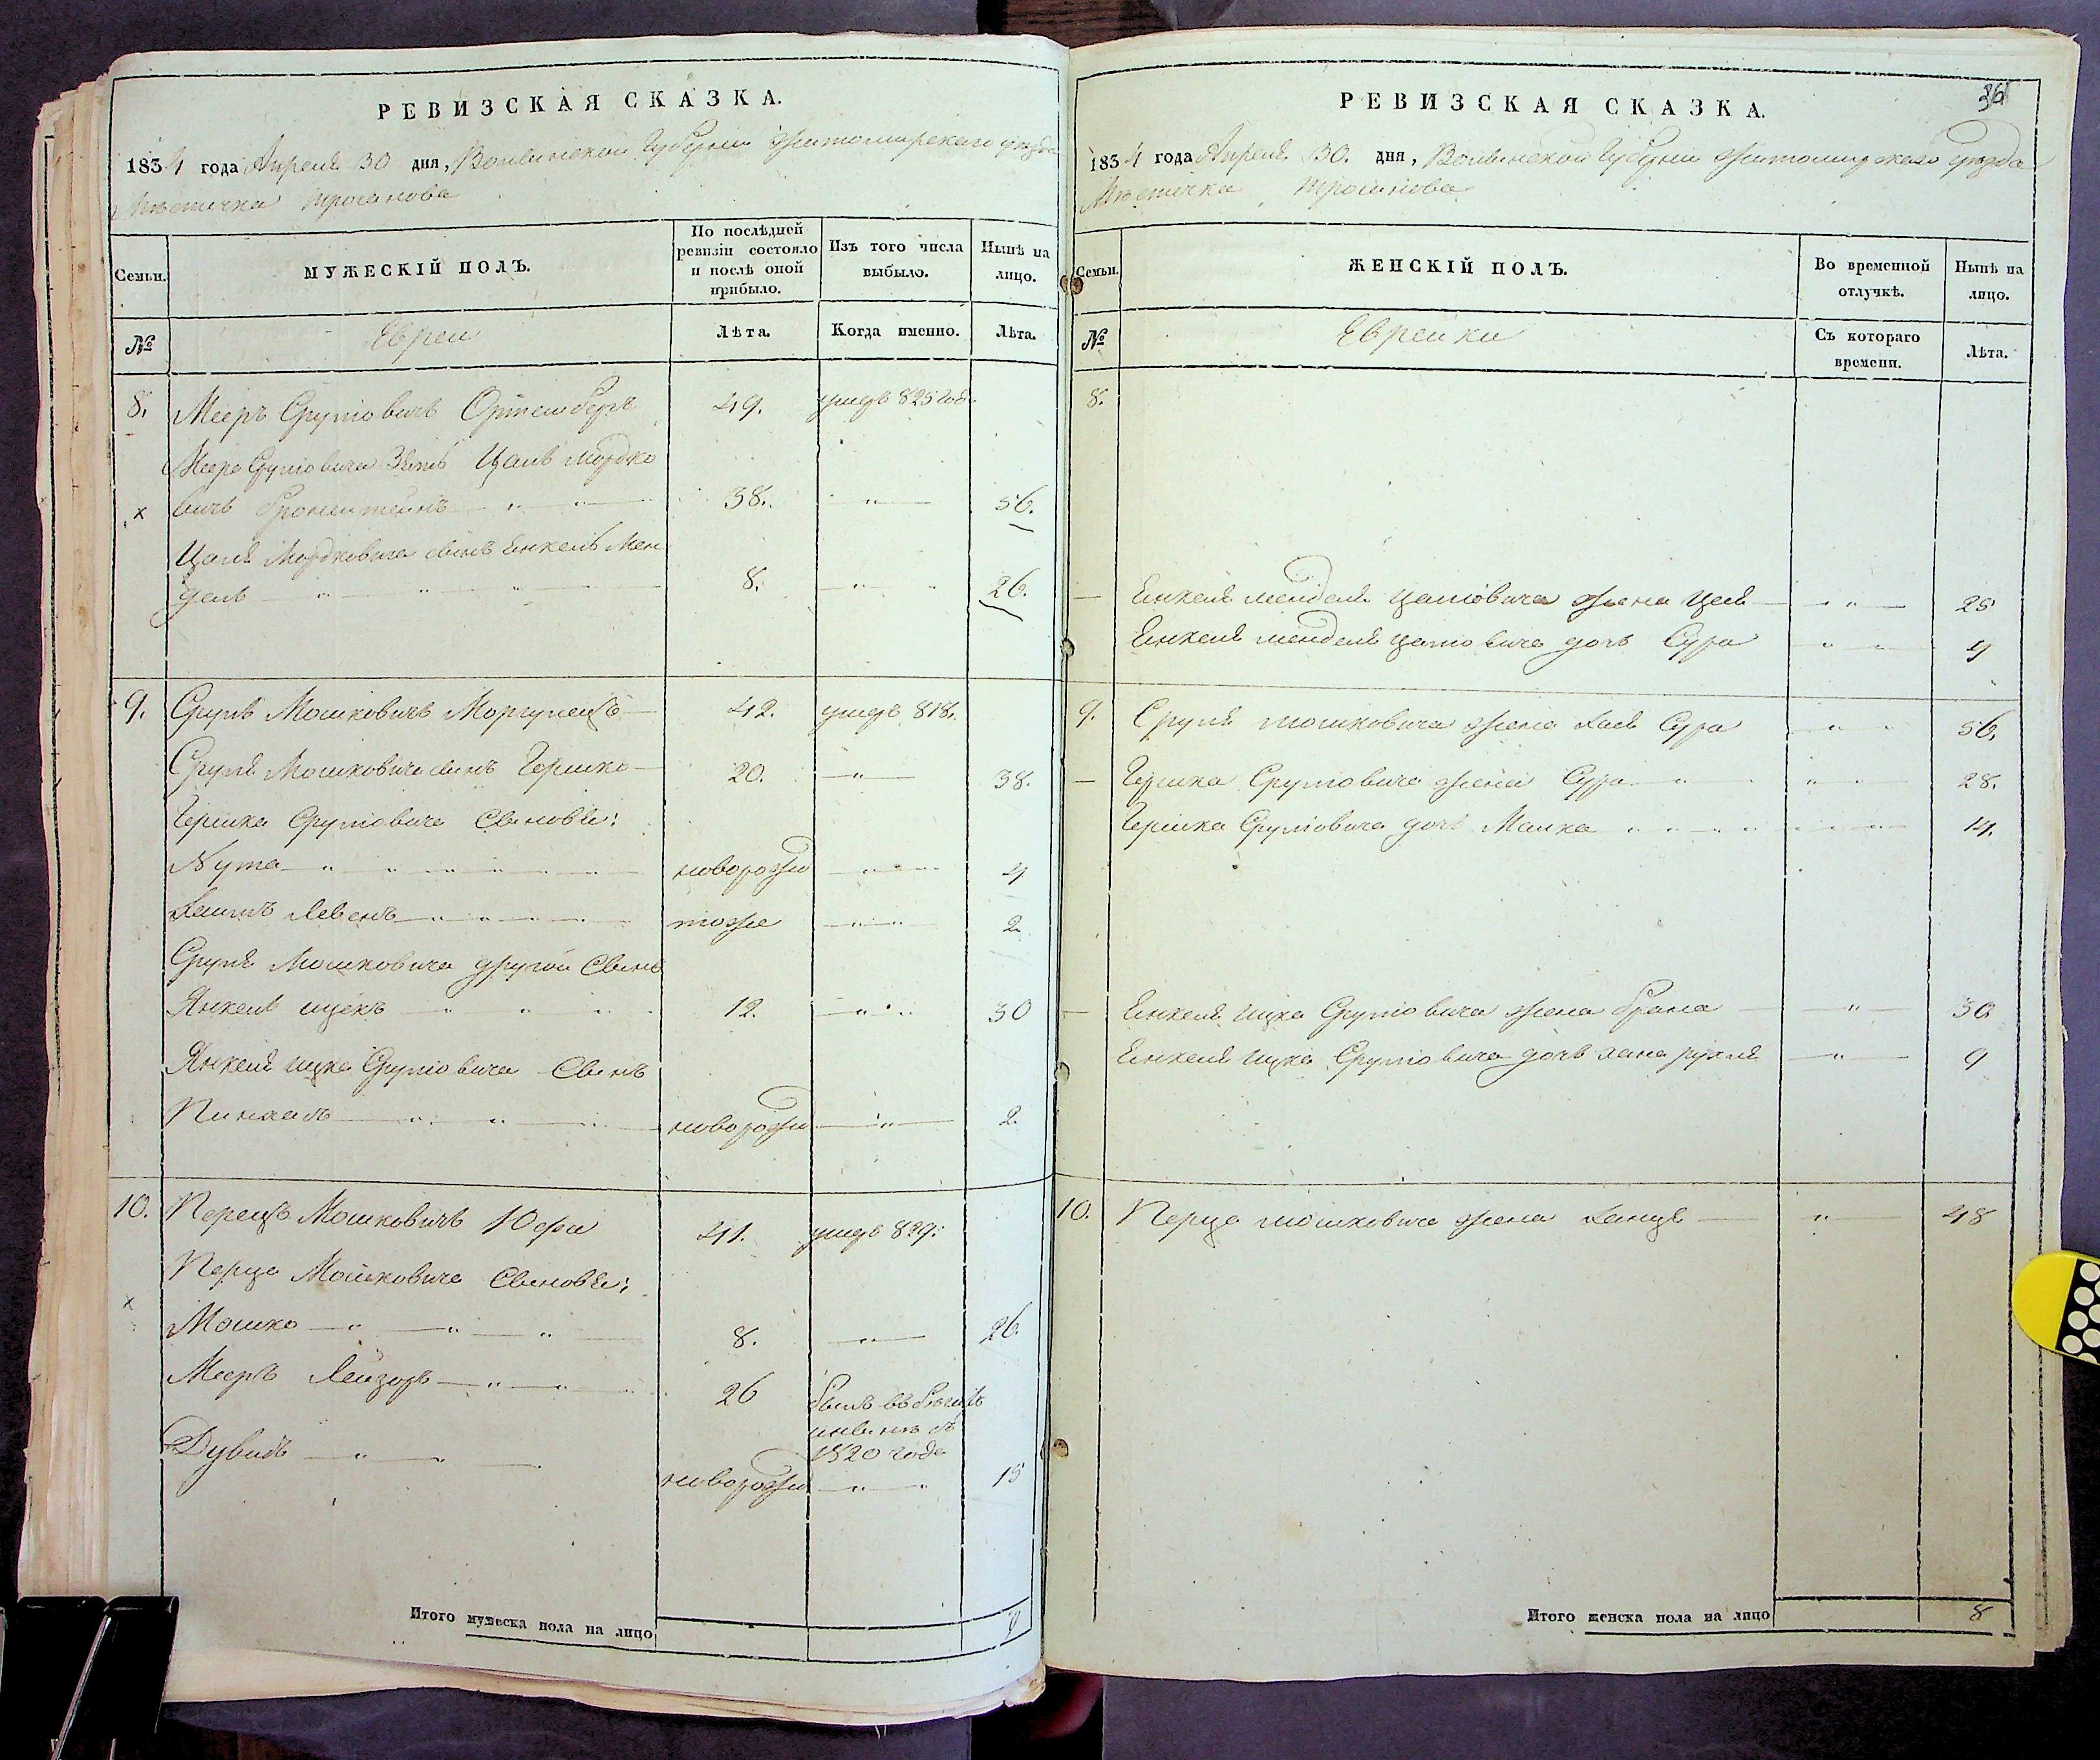 РЕВИЗСКАЯ СКАЗКА.
1834 года Апреля 30 дня, Волынской Губернии Житомирского уезда
Местечка Троянова
Семьи.
МУЖЕСКІЙ ПОЛЪ.
По послѣдней ревизіи состояло и послѣ оной прибыло.
Изъ того числа выбыло.
Нынѣ на лицо.
№
Евреи
Лѣта.
Когда именно.
Лѣта.
8. Мееръ Срулiовичъ 49. умеръ 825 год
Меера Срулiовича Зять Цаль Мордко
вичъ Бронштейнъ 38. 56.
Цаля Мордковича сынъ Енкель Мен
дель 8. 26.
9. Сруль Мошковичъ Моргулецъ 42. умеръ 818.
Сруля Мошковича сынъ Гершко 20. 38.
Гершка Срулiовича Сыновья:
Нута новорожд 4
Хаимъ Лейвъ тоже 2
Сруля Мошковича другой Сынъ
Янкель ицекъ 12. 30
Янкеля ицка Срулiовича Сынъ
Пинхасъ новорожд 2.
10. Перецъ Мошковичъ Юфа 41. умеръ 829.
Перца Мошковича Сыновья:
Мошко 8. 26.
Мееръ Лейзоръ 26
1820 года
Дувидъ новорожд 15
Итого мужеска пола на лицо 9
РЕВИЗСКАЯ СКАЗКА.
36
1834 года Апреля 30. дня, Волынской Губернии Житомирского уезда
Местечка Троянова
Семьи.
ЖЕНСКІЙ ПОЛЪ.
Во временной отлучкѣ.
Нынѣ на лицо.
№
Еврейки
Съ котораго времени.
Лѣта.
8.
Енкеля менделя Цалiовича жена Цея 25
Енкеля менделя цалiовича дочь Сура 4
9. Сруля мошковича жена Хая Сура 56.
Гершка Срулiовича жена Сура 28.
Гершка Срулiовича дочь Малка 14.
Енкеля ицка Срулiовича жена Брана 30
Енкеля ицка Срулiовича дочь хана рухля 9
10. Перца мошковича жена 48
Итого женска пола на лицо 8